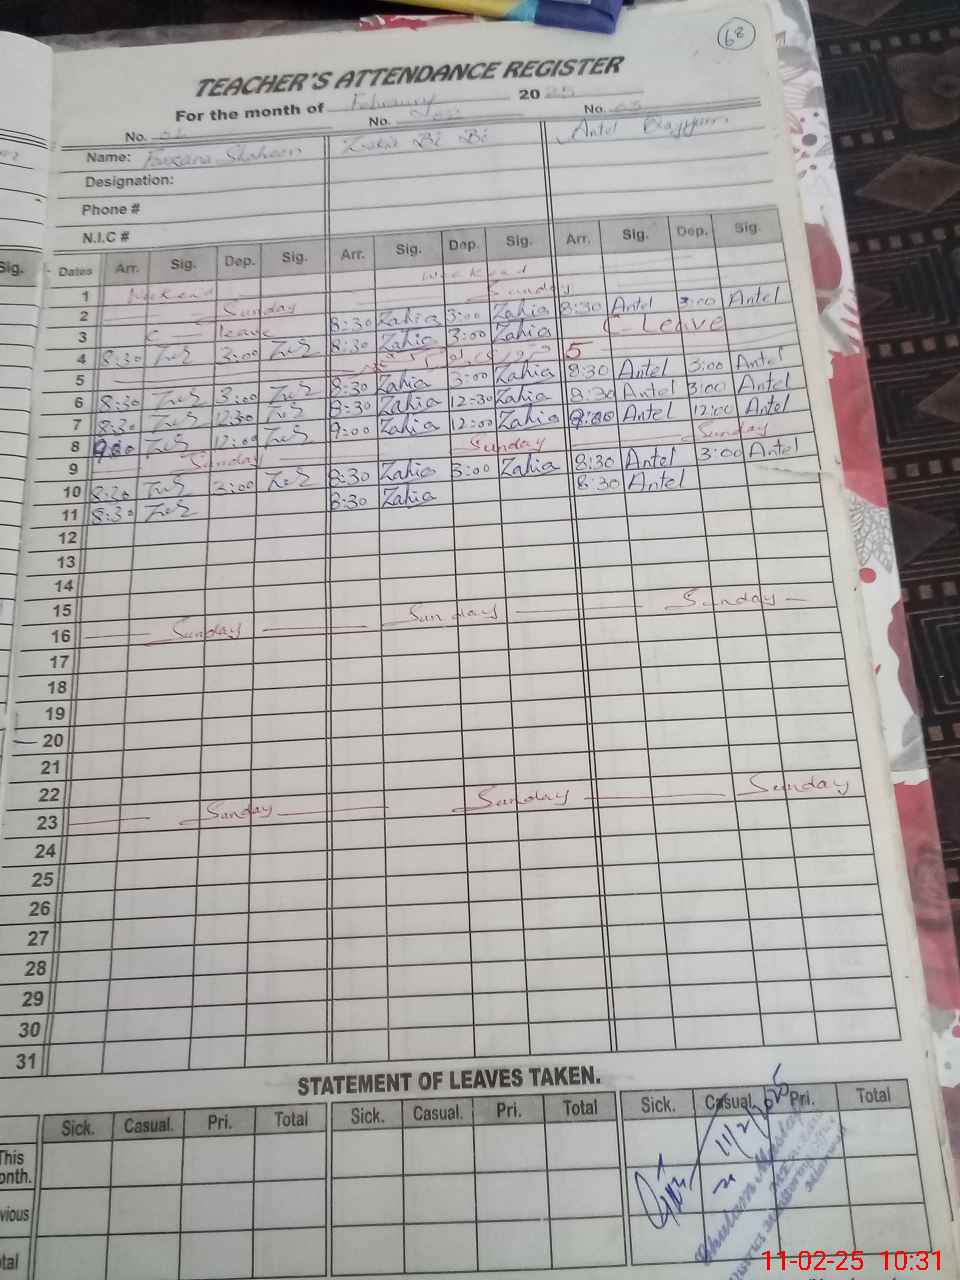 68
TEACHER'S ATTENDANCE REGISTER
For the month of February 2025
No. No. No. 03
Name: Farzana Shaheen Zakia Bi Bi Antel
Designation:
Phone #
N.I.C #
Sig. Dates Arr. Sig. Dep. Sig. Arr. Sig. Dep. Sig. Arr. Sig. Dep. Sig.
1 Weekend Weekend
2 Sunday Sunday
3 C - leave 8:30 Zahia 3:00 Zahia 8:30 Antel 3:00 Antel
4 8:30 3:00 8:30 Zahia 3:00 Zahia C - Leave
5 5
6 8:30 3:00 8:30 Zahia 3:00 Zahia 8:30 Antel 3:00 Antel
7 8:30 12:30 8:30 Zahia 12:30 Zahia 8:30 Antel 3:00 Antel
8 9:00 12:00 9:00 Zahia 12:00 Zahia 9:00 Antel 12:00 Antel
9 Sunday Sunday Sunday
10 8:30 3:00 8:30 Zahia 3:00 Zahia 8:30 Antel 3:00 Antel
11 8:30 8:30 Zahia 8:30 Antel
12
13
14
15
16 Sunday Sunday Sunday
17
18
19
20
21
22
23 Sunday Sunday Sunday
24
25
26
27
28
29
30
31
STATEMENT OF LEAVES TAKEN.
Sick. Casual. Pri. Total Sick. Casual. Pri. Total Sick. Casual. Pri. Total
This
onth.
vious
tal
11/2/2025
11-02-25 10:31